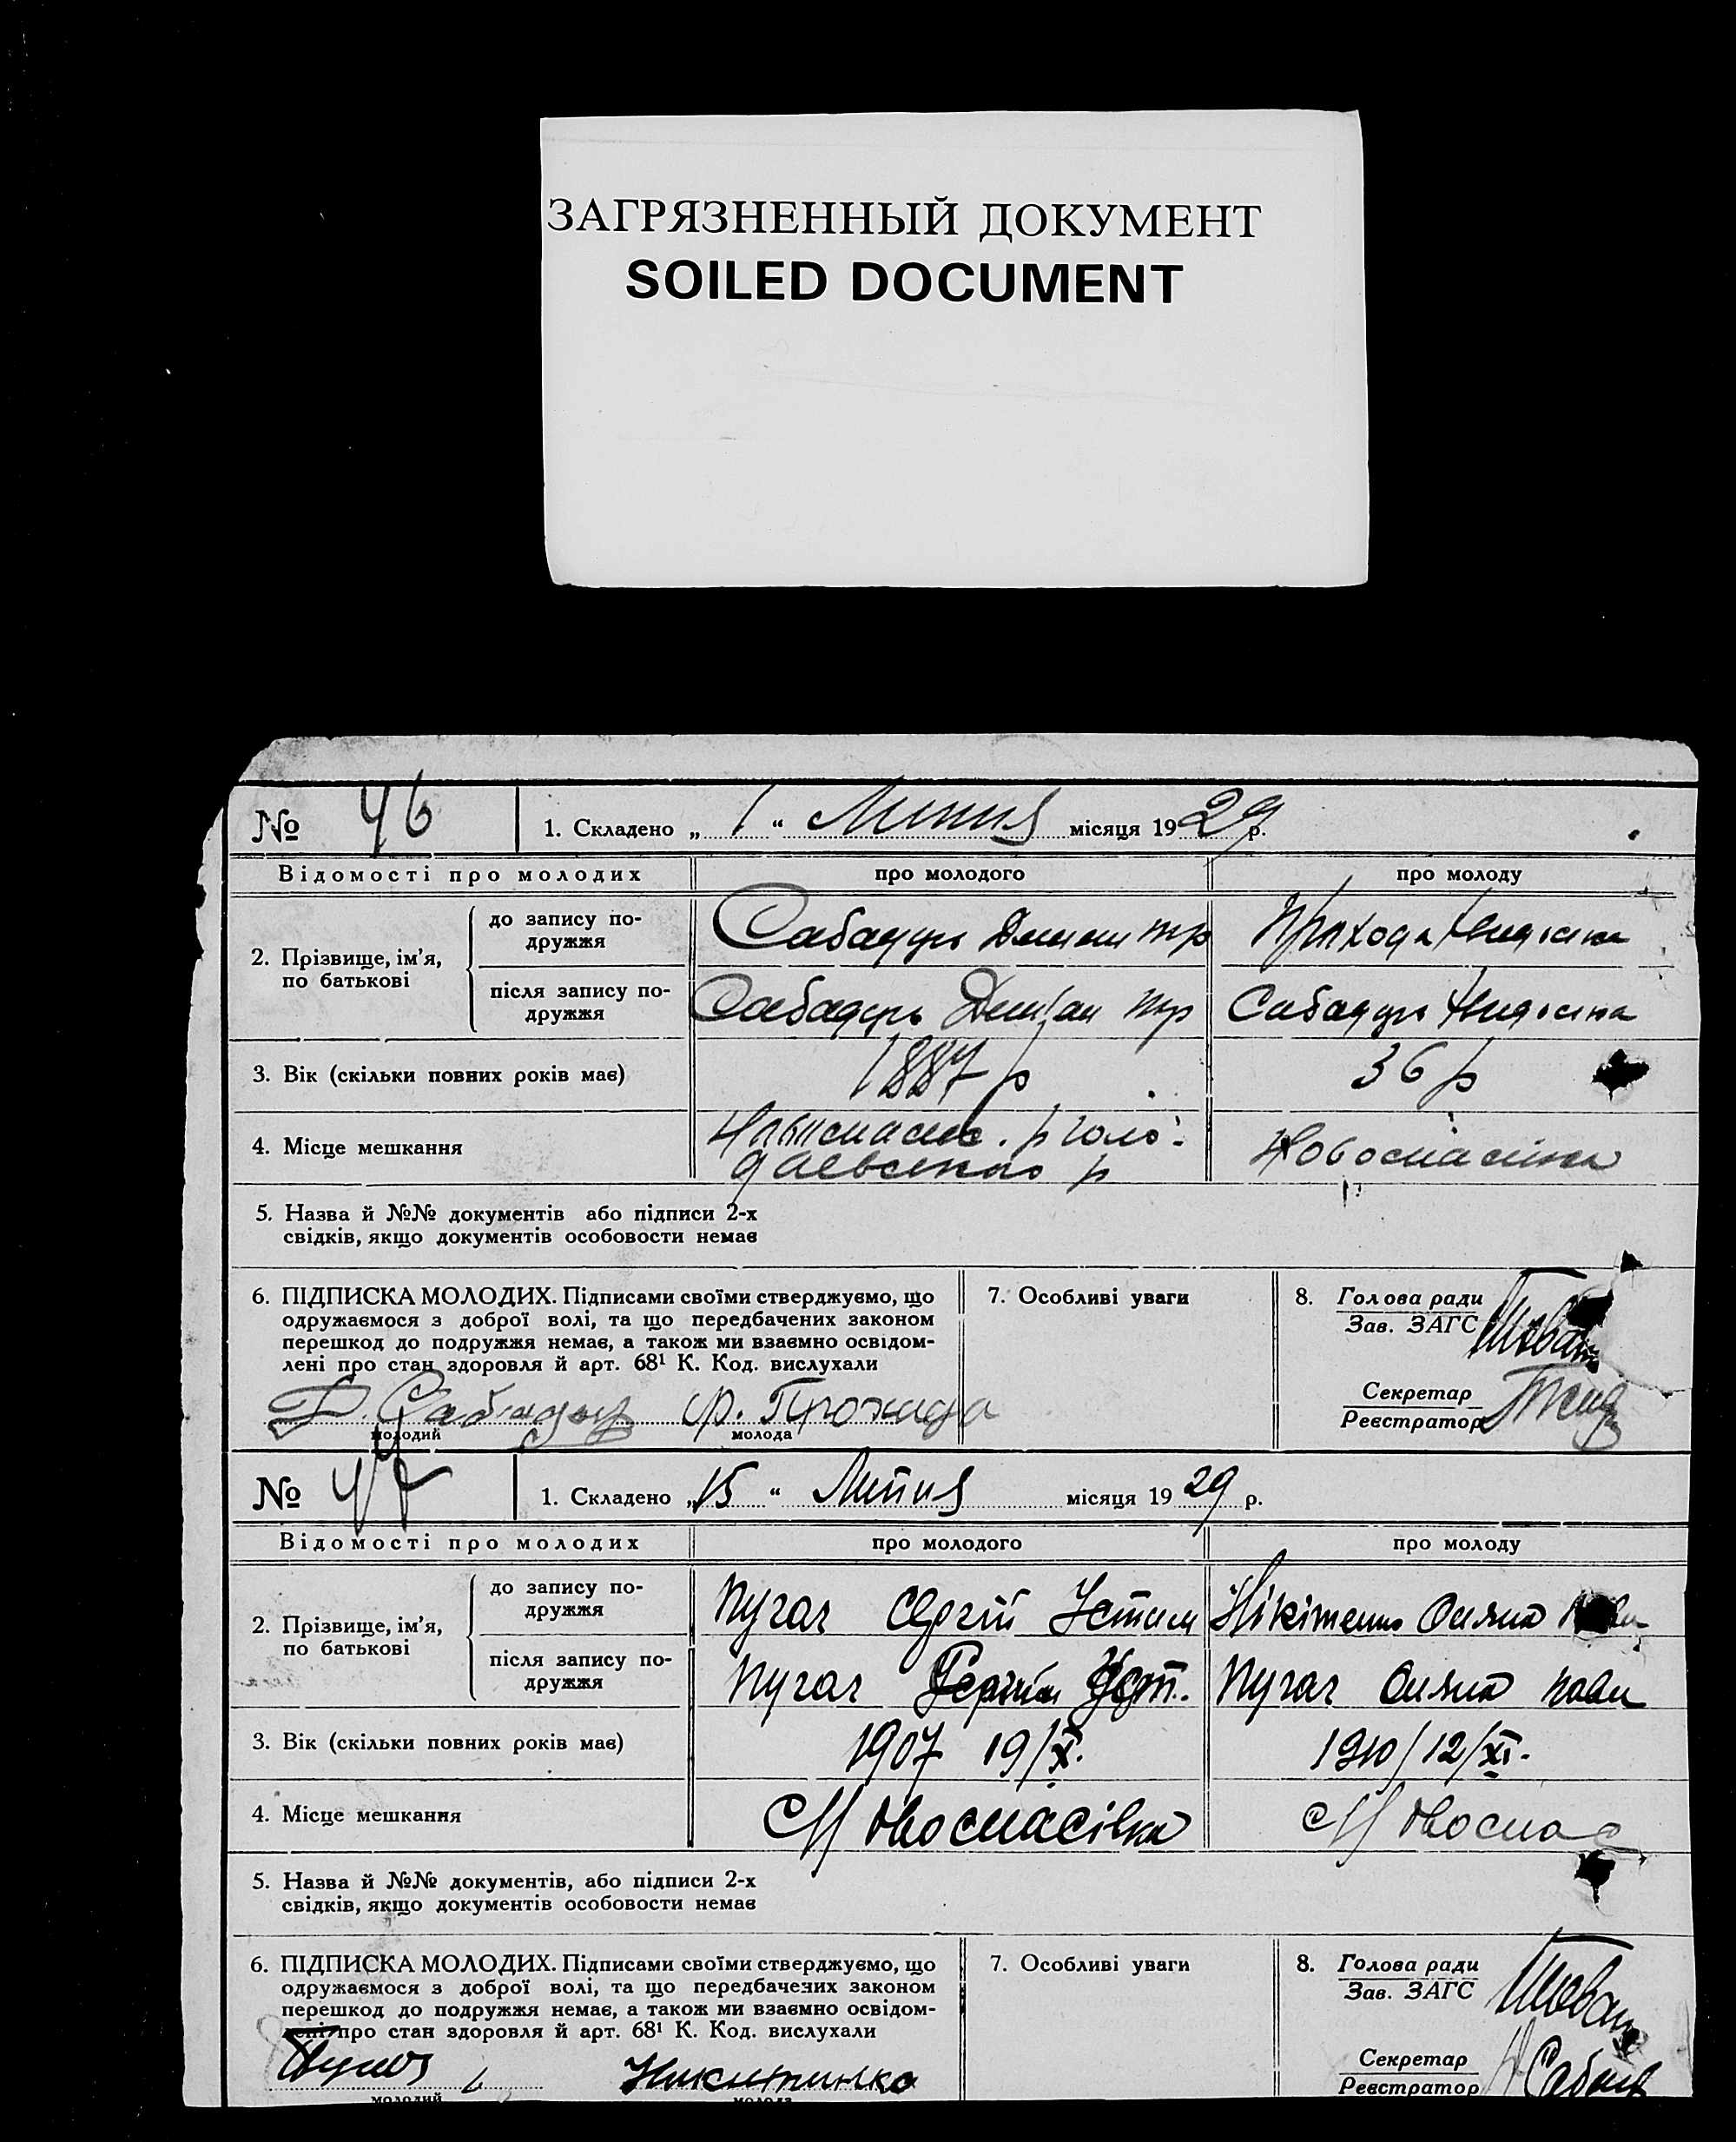 ЗАГРЯЗНЕННЫЙ ДОКУМЕНТ
SOILED DOCUMENT
№ 46
1. Складено „ 1 “ Липня місяця 1929 р.
Відомості про молодих
про молодого
про молоду
2. Прізвище, ім’я, по батькові
до запису по-
дружжя
Сабадирь
після запису по-
дружжя
Сабадирь
Сабадирь
3. Вік (скільки повних років має)
1887 р
36 р
4. Місце мешкання
Новоспасівка
5. Назва й №№ документів або підписи 2-х
свідків, якщо документів особовости немає
6. ПІДПИСКА МОЛОДИХ. Підписами своїми стверджуємо, що
одружаємося з доброї волі, та що передбачених законом
перешкод до подружжя немає, а також ми взаємно освідом-
лені про стан здоровля й арт. 68¹ К. Код. вислухали
молодий
молода
7. Особливі уваги
8. Голова ради
Зав. ЗАГС
Секретар
Реєстратор
№ 47
1. Складено „ 15 “ Липня місяця 1929 р.
Відомості про молодих
про молодого
про молоду
2. Прізвище, ім’я, по батькові
до запису по-
дружжя
Пугач Сергій Устим
Нікітенко
після запису по-
дружжя
Пугач Сергій Уст.
Пугач
3. Вік (скільки повних років має)
1907 19/X.
1910/12/XI.
4. Місце мешкання
Новоспасівка
Новоспас
5. Назва й №№ документів, або підписи 2-х
свідків, якщо документів особовости немає
6. ПІДПИСКА МОЛОДИХ. Підписами своїми стверджуємо, що
одружаємося з доброї волі, та що передбачених законом
перешкод до подружжя немає, а також ми взаємно освідом-
лені про стан здоровля й арт. 68¹ К. Код. вислухали
молодий
молода
7. Особливі уваги
8. Голова ради
Зав. ЗАГС
Секретар
Реєстратор